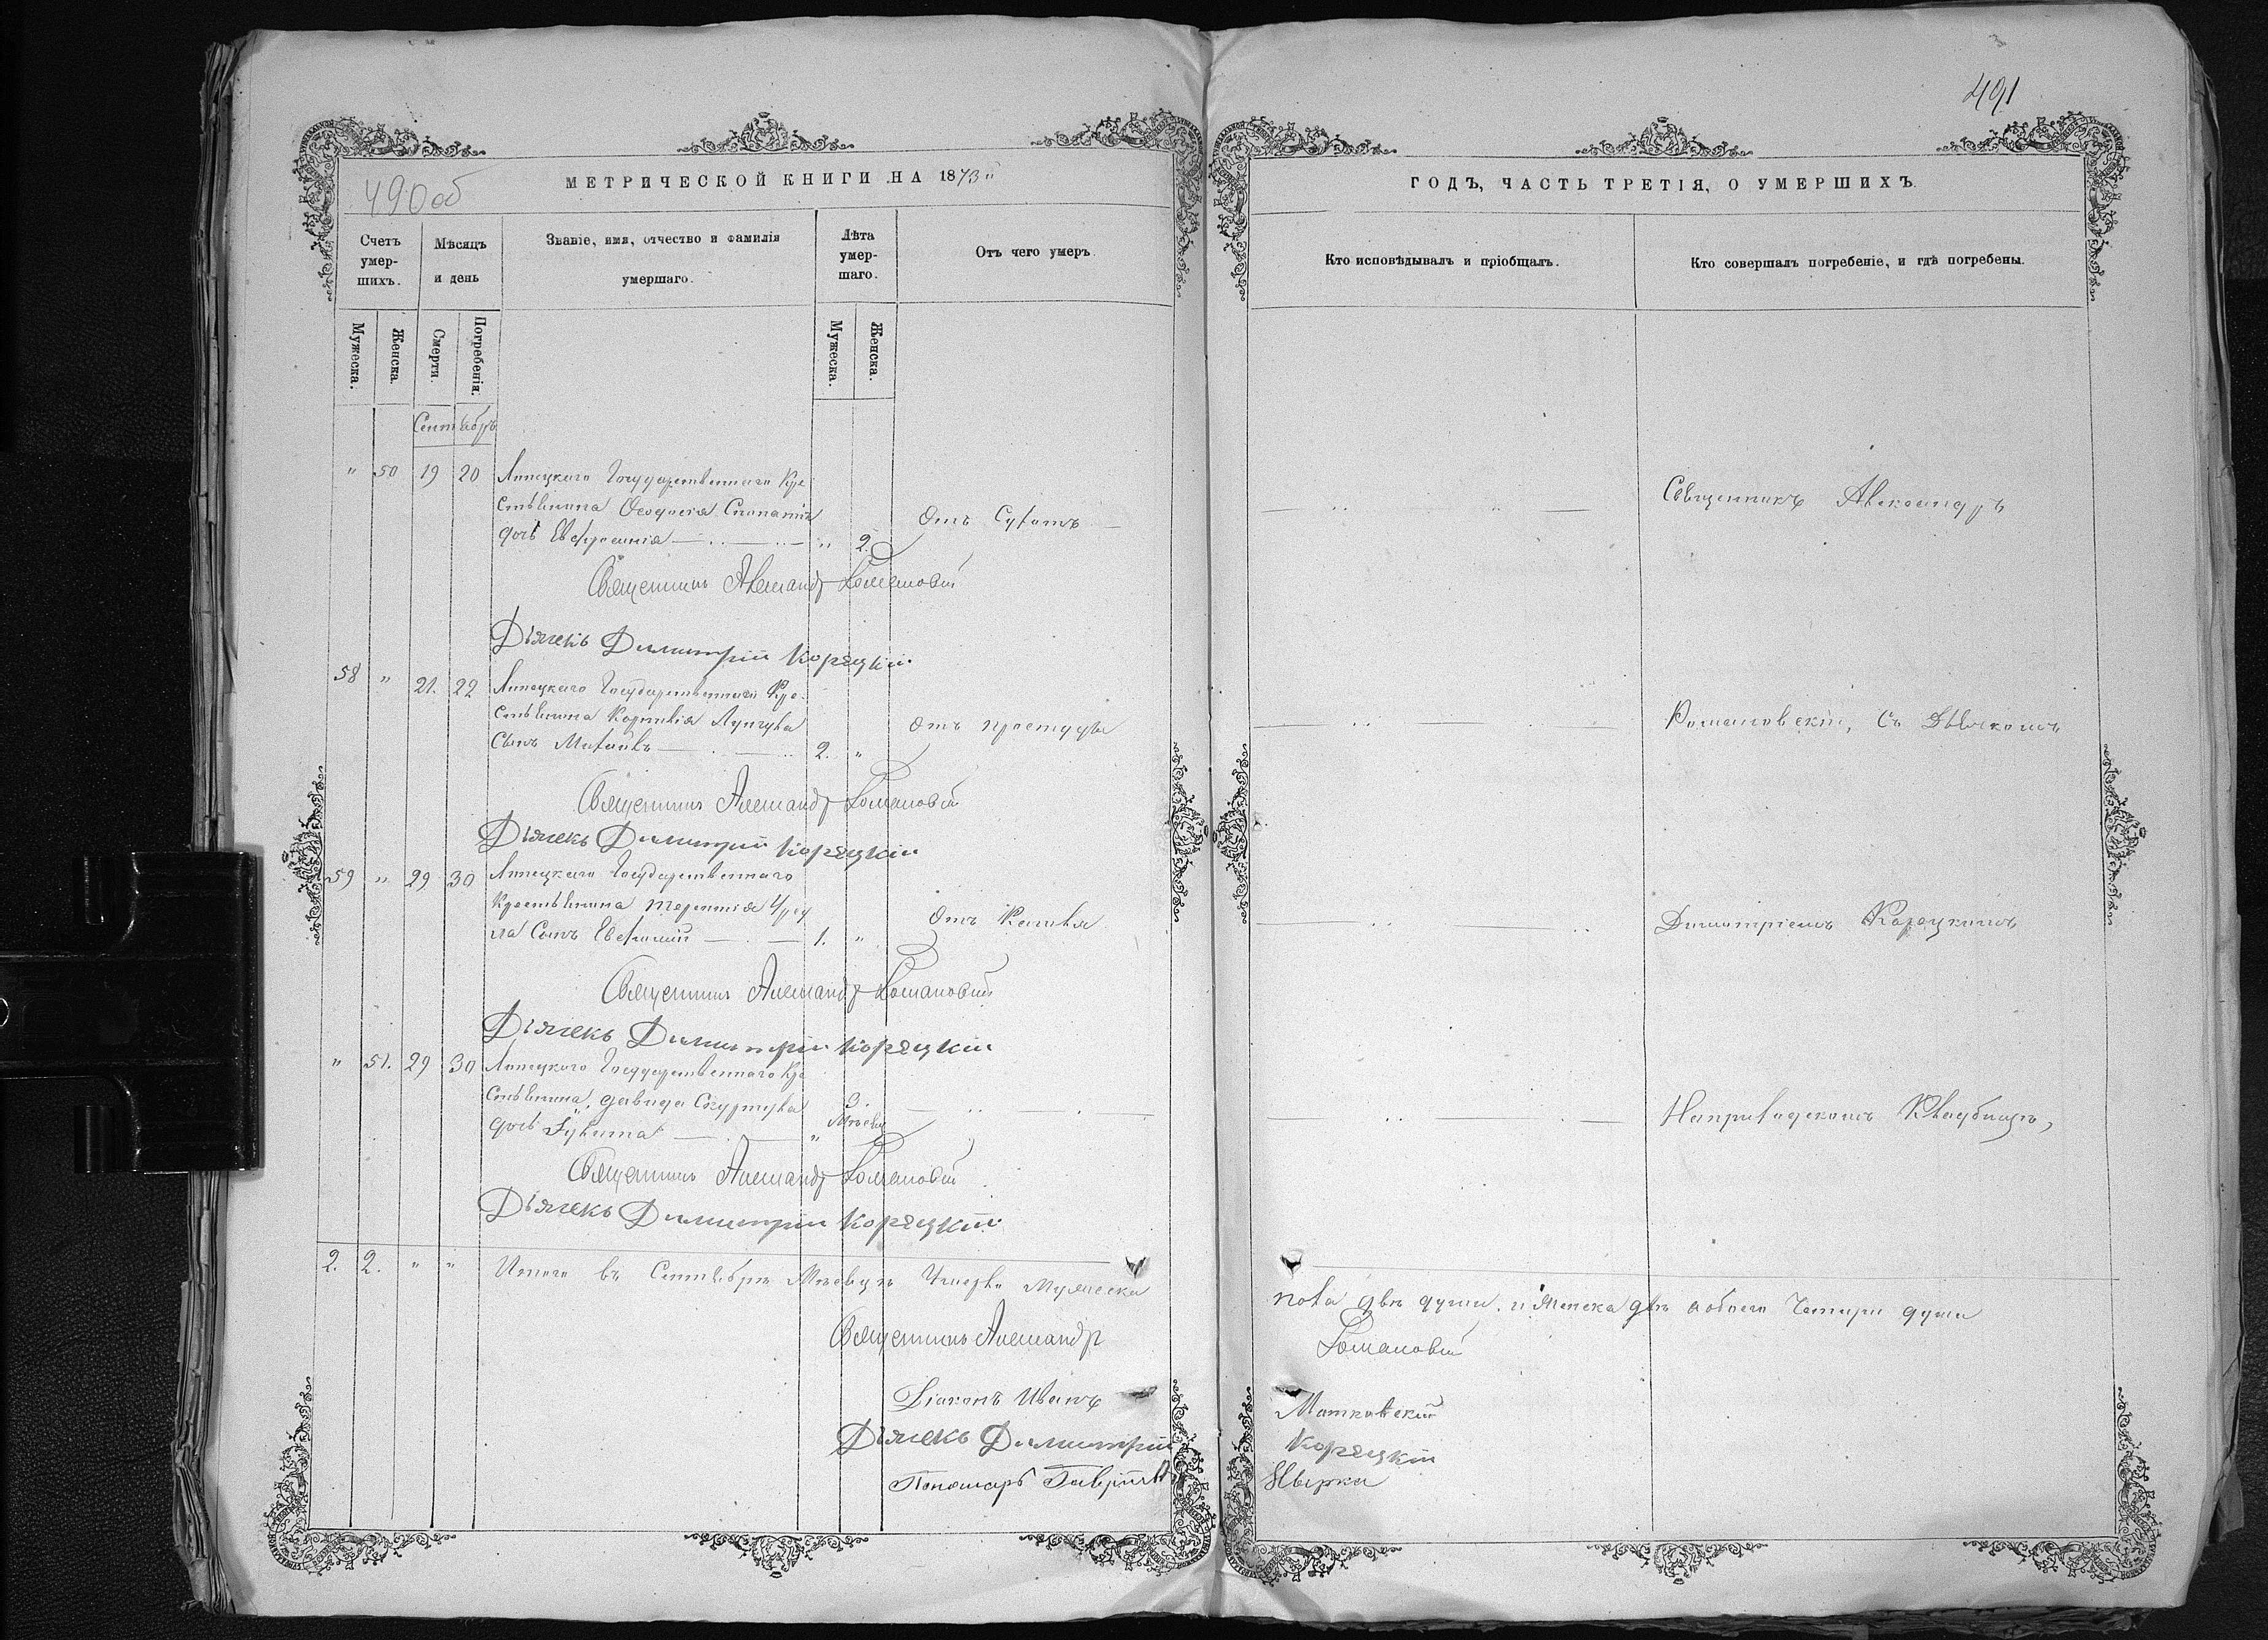 491
490об
МЕТРИЧЕСКОЙ КНИГИ НА 1873
ГОДЪ, ЧАСТЬ ТРЕТІЯ, О УМЕРШИХЪ.
Счетъ умер-шихъ.
Мѣсяцъ и день
Званіе, имя, отчество и фамилія умершаго.
Лѣта умер-шаго.
Отъ чего умеръ.
Кто исповѣдывалъ и пріобщалъ.
Кто совершалъ погребеніе, и гдѣ погребены.
Мужеска.
Женска.
Смерти.
Погребенія.
Мужеска.
Женска.
Сентябрь
" 50 19 20 Липецкаго Государственнаго Кре
стьянина Ѳеодосія
дочь Евфросинія " 2. Отъ Сухотъ
Священникъ Александръ
Священникъ Александръ Романовскій
Дьячекъ Димитрій Корецкій
58 " 21. 22 Липецкаго Государственнаго Кре
стьянина Корнилія Лунгула
сынъ Михаилъ 2. " Отъ простуды
Романовскій, Съ Дьячкомъ
Священникъ Александръ Романовскій
Дьячекъ Димитрій Корецкій
59 " 29 30 Липецкаго Государственнаго
Крестьянина Терентія
сынъ Евфимій 1. " Отъ Кашля
Димитріемъ Корецкимъ
Священникъ Александръ Романовскій
Дьячекъ Димитрій Корецкій
" 51. 29 30 Липецкаго Государственнаго Кре
стьянина Давида 3.
дочь " Мѣсяц
На приходскомъ Кладбищѣ,
Священникъ Александръ Романовскій
Дьячекъ Димитрій Корецкій
2. 2. " " Итого въ Сентябрѣ Мѣсяцѣ Умерло Мужеска
пола двѣ души, и Женска двѣ а обоего Четыри души
Священникъ Александръ Романовскій
Діаконъ Иванъ Матковскій
Дьячекъ Димитрій Корецкій
Пономарь Гавріилъ